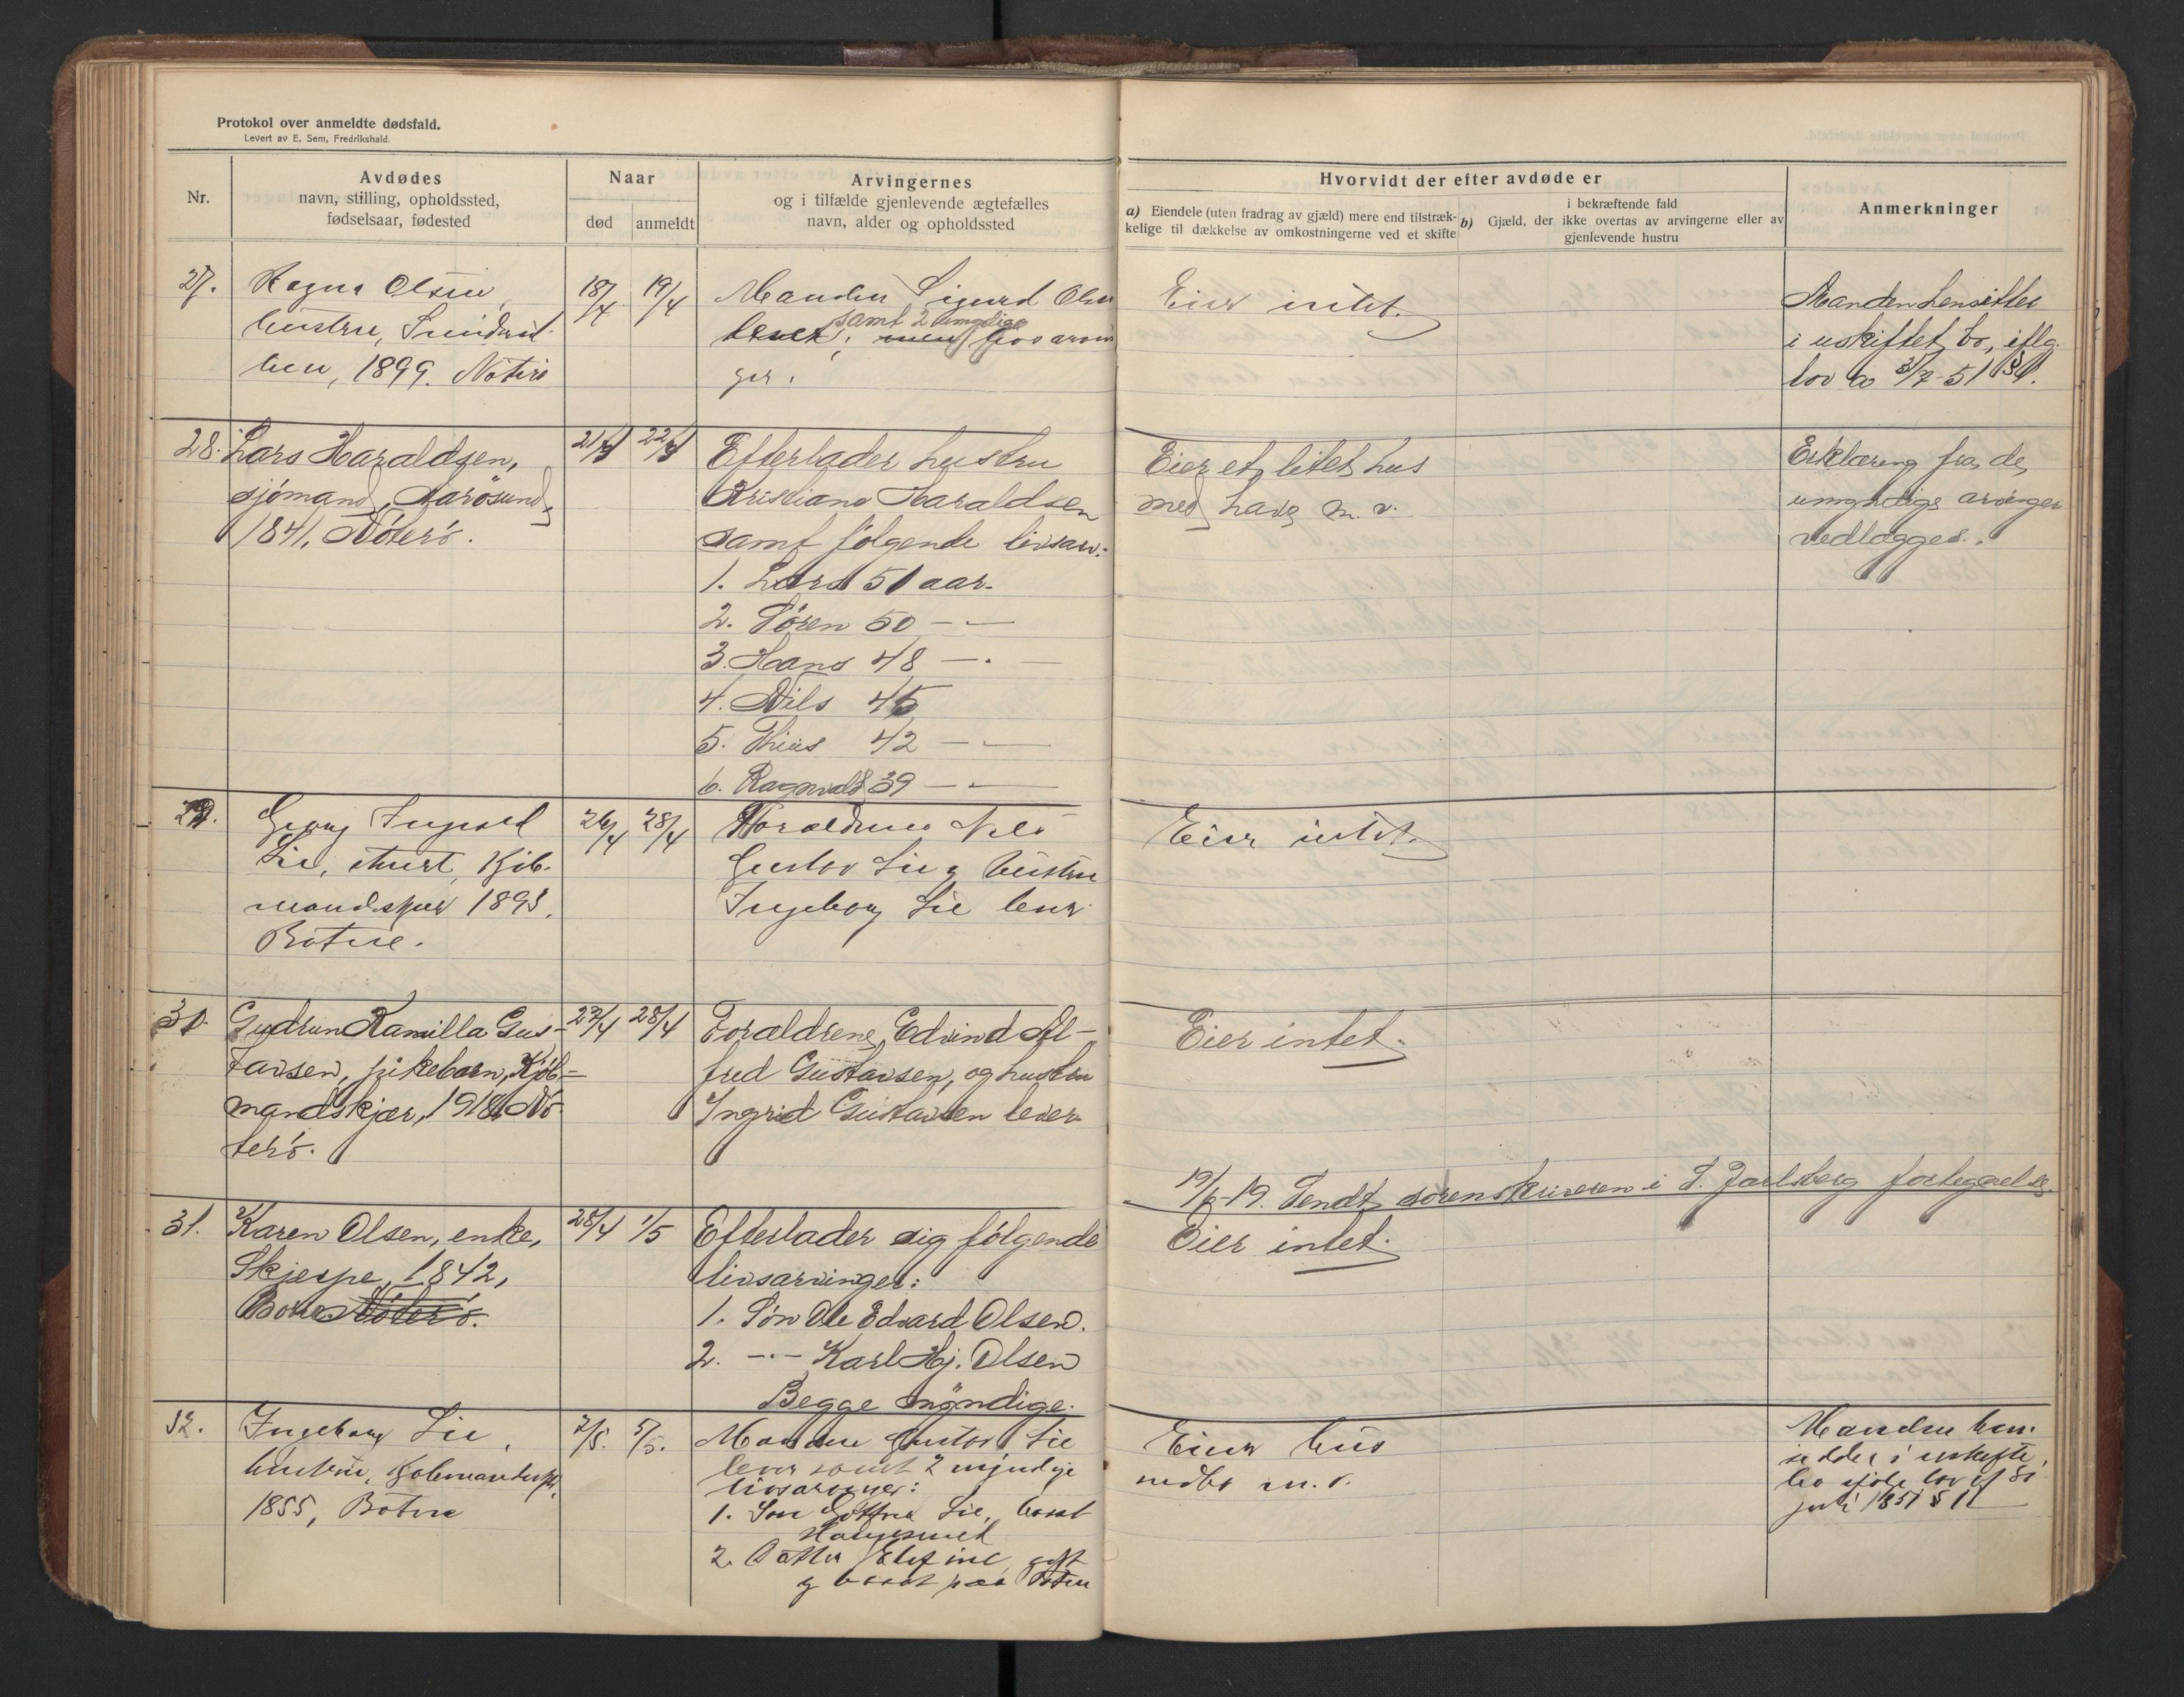 Protokol over anmeldte dødsfald.
Levert av E. Sem, Fredrikshald.
Nr.
Avdødes
navn, stilling, opholdssted,
fødselsaar, fødested
Naar
død
anmeldt
Arvingernes
og i tilfælde gjenlevende ægtefælles
navn, alder og opholdssted
Hvorvidt der efter avdøde er
a) Eiendele (uten fradrag av gjæld) mere end tilstræk-
kelige til dækkelse av omkostningerne ved et skifte
i bekræftende fald
b) Gjæld, der ikke overtas av arvingerne eller av
gjenlevende hustru
Anmerkninger
27.
Ragna Olsen,
hustru,
1899. Nøterø
18/4
19/4
Manden Sigurd Olsen
samt 2 umyndige
lever; men livsarvin
ger.
Eier intet.
Manden hensitter
i uskiftet bo, iflg.
lov av 31/7-51 §1.
28.
Lars Haraldsen,
sjömand, Aarösund,
1841, Nöterö.
21/4
22/4
Efterlader hustru
Kristiane Haraldsen
samt følgende livsarv:
1. Lars 51 aar.
2. Sören 50 -"-
3. Hans 48 -"-
4. Nils 45
5. Thius 42 -"-
6. Ragnvald 39 -"-
Eier et litet hus
med have m. v.
Erklæring fra de
umyndige arvinger
vedlægges.
29.
Georg Ingvald
Lie, Kjöb-
mandskjær 1893,
Botne.
26/4
28/4
Forældrene Nils
Gustav Lie og hustru
Ingeborg Lie lever
Eier intet.
30.
Gudrun Kamilla Gus-
tavsen, pikebarn, Kjöb-
mandskjær, 1918, Nö-
terö.
27/4
28/4
Forældrene Edvind Al-
fred Gustavsen, og hustru
Ingrid Gustavsen lever
Eier intet.
19/5-19. Sendt sorenskriveren i S. Jarlsberg fortegnelse
31.
Karen Olsen, enke,
Skjerpe, 1842,
Borre Nöterö.
28/4
1/5
Efterlader sig følgende
livsarvinger:
1. Sön Ole Edvard Olsen.
2. -"- Karl Hj. Olsen
Begge myndige.
Eier intet.
32.
Ingeborg Lie,
hustru, Kjöbmandskjær,
1855, Botne
2/5.
5/5.
Manden Gustav Lie
lever samt 2 myndige
livsarvinger:
1. Sön Lie, bosat
2. Datter gift
og bosat paa
Eier hus
indbo m. v.
Manden hen-
sidder i uskifte
bo ifölge lov af 31
juli 1851 § 1